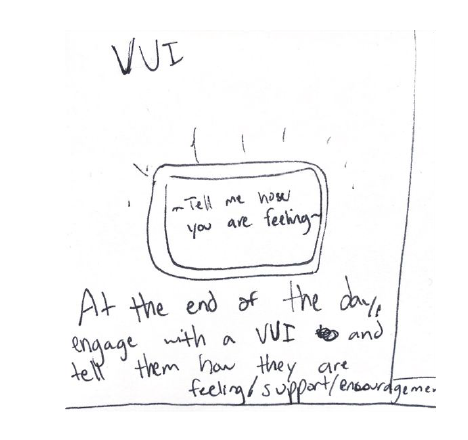 VUI
~Tell me how
you are feeling~
At the end of the day,
engage with a VUI and
tell them how they are
feeling/support/encouragemen